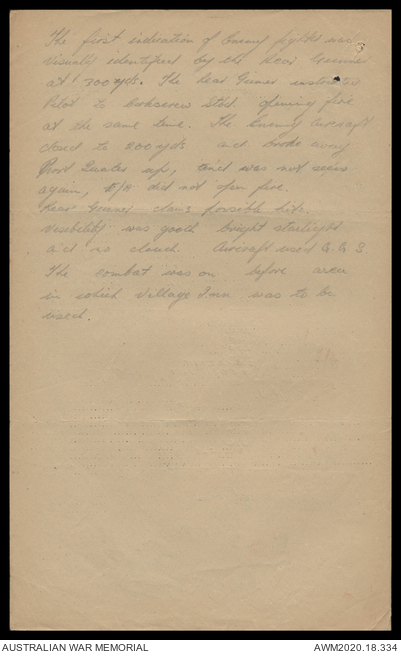 The first indication of Enemy fighter was
visually identified by the Rear Gunner
at 700 yds. The Rear Gunner instructed
Pilot to corkscrew Stbd. opening fire
at the same time. The Enemy Aircraft
closed to 200 yds and broke away
Port Quarter up, and was not seen
again, E/A did not open fire.
Rear Gunner claims possible hits.
Visibility was good bright starlight
and no cloud. Aircraft used
The combat was on before area
in which Village Inn was to be
used.
AUSTRALIAN WAR MEMORIAL
AWM2020.18.334